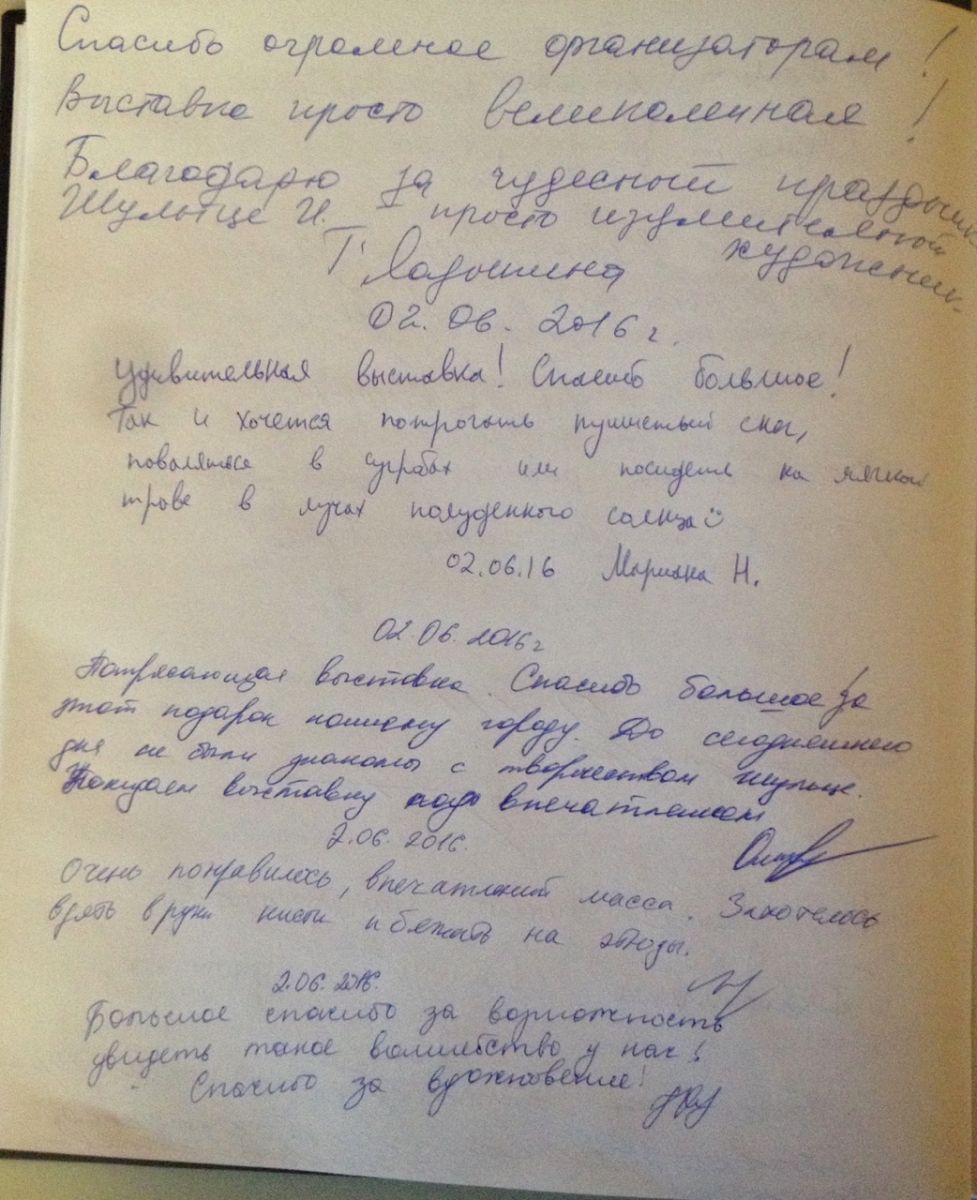 Спасибо огромное организаторам!
Выставка просто великолепная!
Благодарю за чудесный праздник
Шульце И. – просто изумительный
художник
Т. Ладошина
02.06.2016 г.
Удивительная выставка! Спасибо большое!
Так и хочется потрогать пушистый снег,
поваляться в сугробах или посидеть на мягкой
траве в лучах полуденного солнца
02.06.16 Мариана Н.
02.06.2016 г
Потрясающая выставка. Спасибо большое за
этот подарок нашему городу. До сегодняшнего
дня не были знакомы с творчеством Шульце.
Покидаем выставку под впечатлением
2.06.2016.
Очень понравилось, впечатлений масса. Захотелось
взять в руки кисти и бежать на этюды.
2.06.2016.
Большое спасибо за возможность
увидеть такое волшебство у нас!
Спасибо за вдохновение!